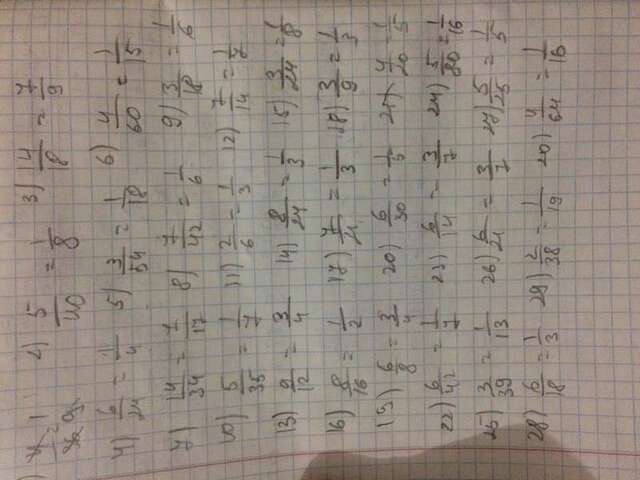 2) 5/40 = 1/8 3) 14/18 = 7/9
4) 6/24 = 1/4 5) 3/54 = 1/18 6) 4/60 = 1/15
7) 14/34 = 7/17 8) 7/42 = 1/6 9) 3/18 = 1/6
10) 5/35 = 1/7 11) 2/6 = 1/3 12) 7/14 =
13) 9/12 = 3/4 14) 8/24 = 1/3 15) 3/24 = 1/8
16) 8/16 = 1/2 17) 7/21 = 1/3 18) 3/9 = 1/3
19) 6/8 = 3/4 20) 6/30 = 1/5 21) 4/20 1/5
22) 6/42 = 1/7 23) 6/14 = 3/7 24) 5/80 = 1/16
25) 3/39 = 1/13 26) 6/21 = 3/7 27) 5/25 = 1/5
28) 6/18 = 1/3 29) 2/38 = 1/19 20) 4/64 = 1/16